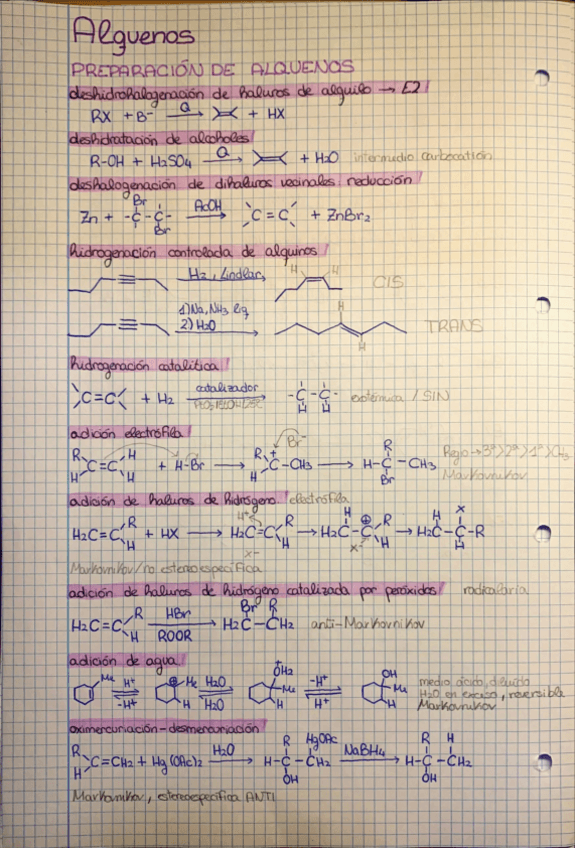 Alquenos
PREPARACIÓN DE ALQUENOS
deshidrohalogenación de haluros de alquilo → E2
RX + B⁻ →(Q) + HX
deshidratación de alcoholes
R-OH + H₂SO₄ →(Q) + H₂O intermedio carbocatión
deshalogenación de dihaluros vecinales: reducción
Zn + -C(Br)-C(Br)- →(AcOH) C=C + ZnBr₂
hidrogenación controlada de alquinos
H₂, Lindlar H H CIS
1) Na, NH₃ liq
2) H₂O H H TRANS
hidrogenación catalítica
C=C + H₂ →(catalizador) -C(H)-C(H)- exotérmica / SIN
adición electrófila
R H C=C H H + H-Br → R H C⁺-CH₃ Br⁻ → H-C(R)(Br)-CH₃ Regio→3º>2º>1º>CH₃
Markovnikov
adición de haluros de hidrógeno: electrófila
H₂C=C R H + HX → H₂C=C R H H⁺ X⁻ → H₂C(H)-C⊕ R H X⁻ → H₂C(H)-C(X)(H)-R
Markovnikov/no estereoespecífica
adición de haluros de hidrógeno catalizada por peróxidos radicalaria
H₂C=C R H →(HBr, ROOR) H₂C(Br)-CH₂(R) anti-Markovnikov
adición de agua
Me H⁺ -H⁺ ⊕ Me H H₂O H₂O ⁺OH₂ Me H -H⁺ H⁺ OH Me H medio ácido, diluido
H₂O en exceso, reversible
Markovnikov
oximercuriación-desmercuriación
R H C=CH₂ + Hg(OAc)₂ →(H₂O) H-C(R)(OH)-CH₂(HgOAc) →(NaBH₄) H-C(R)(OH)-CH₂(H)
Markovnikov, estereoespecífica ANTI